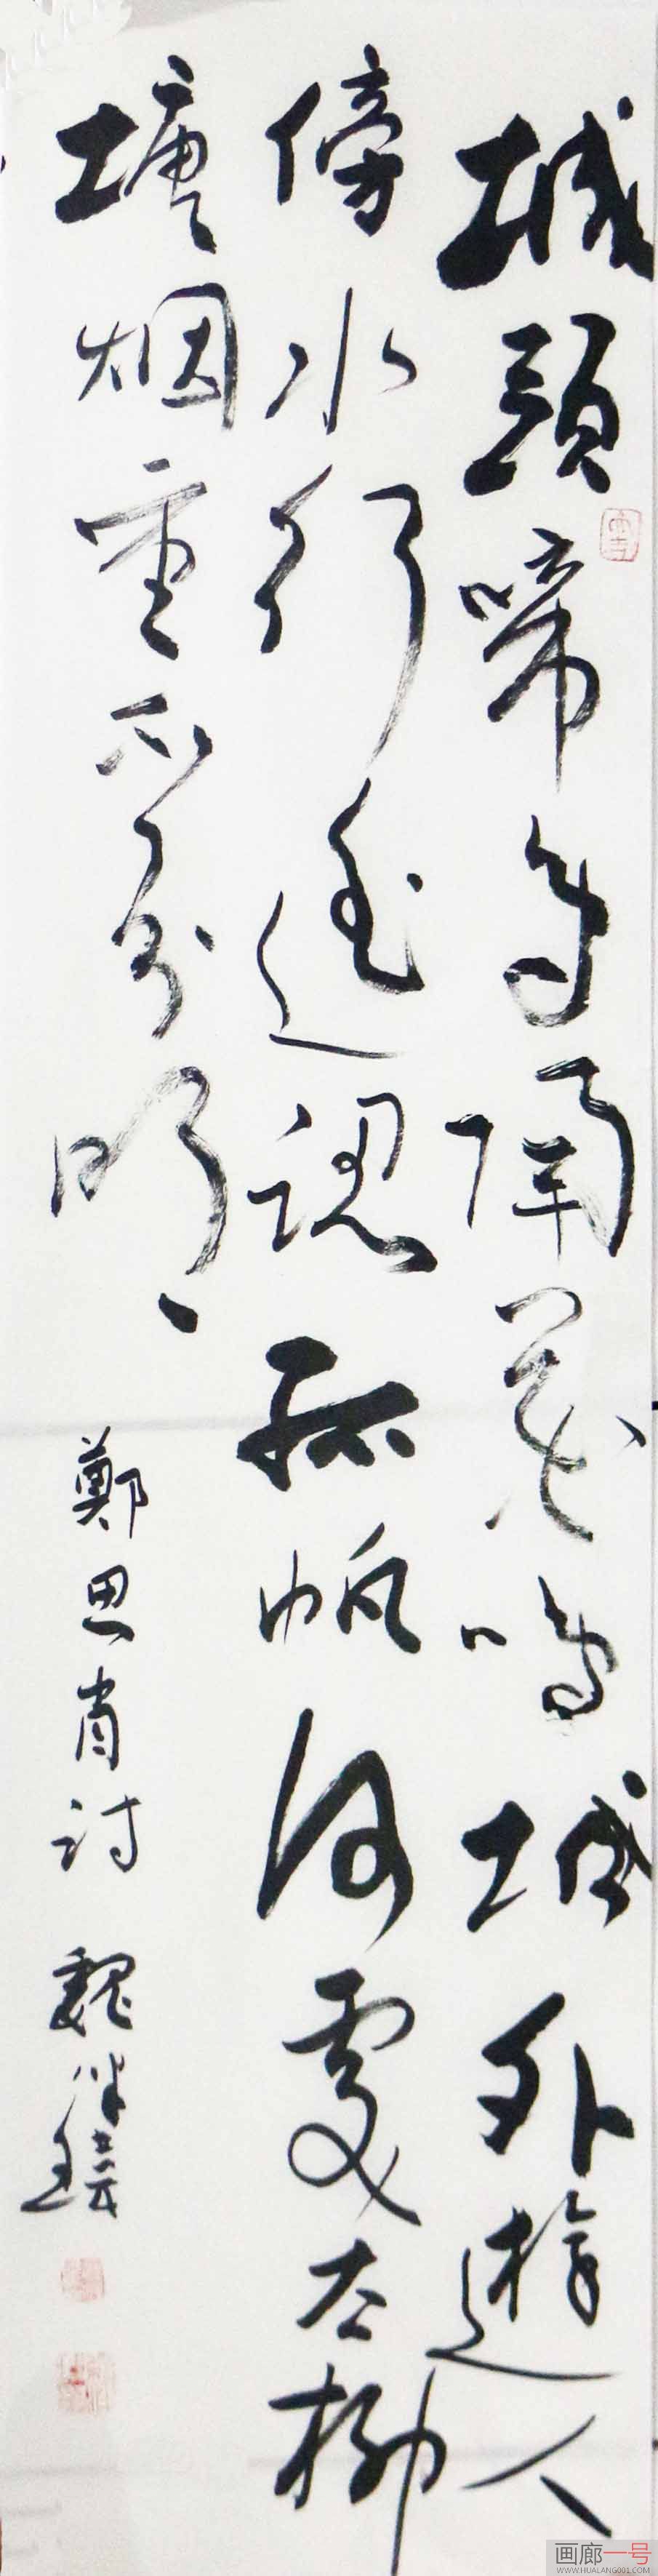 城頭啼鳥隔花鳴城外遊人
傍水行遥認孤帆何處去柳
塘烟重不分明
鄭思肖詩 魏
画廊一号
WWW.HUALANG001.COM